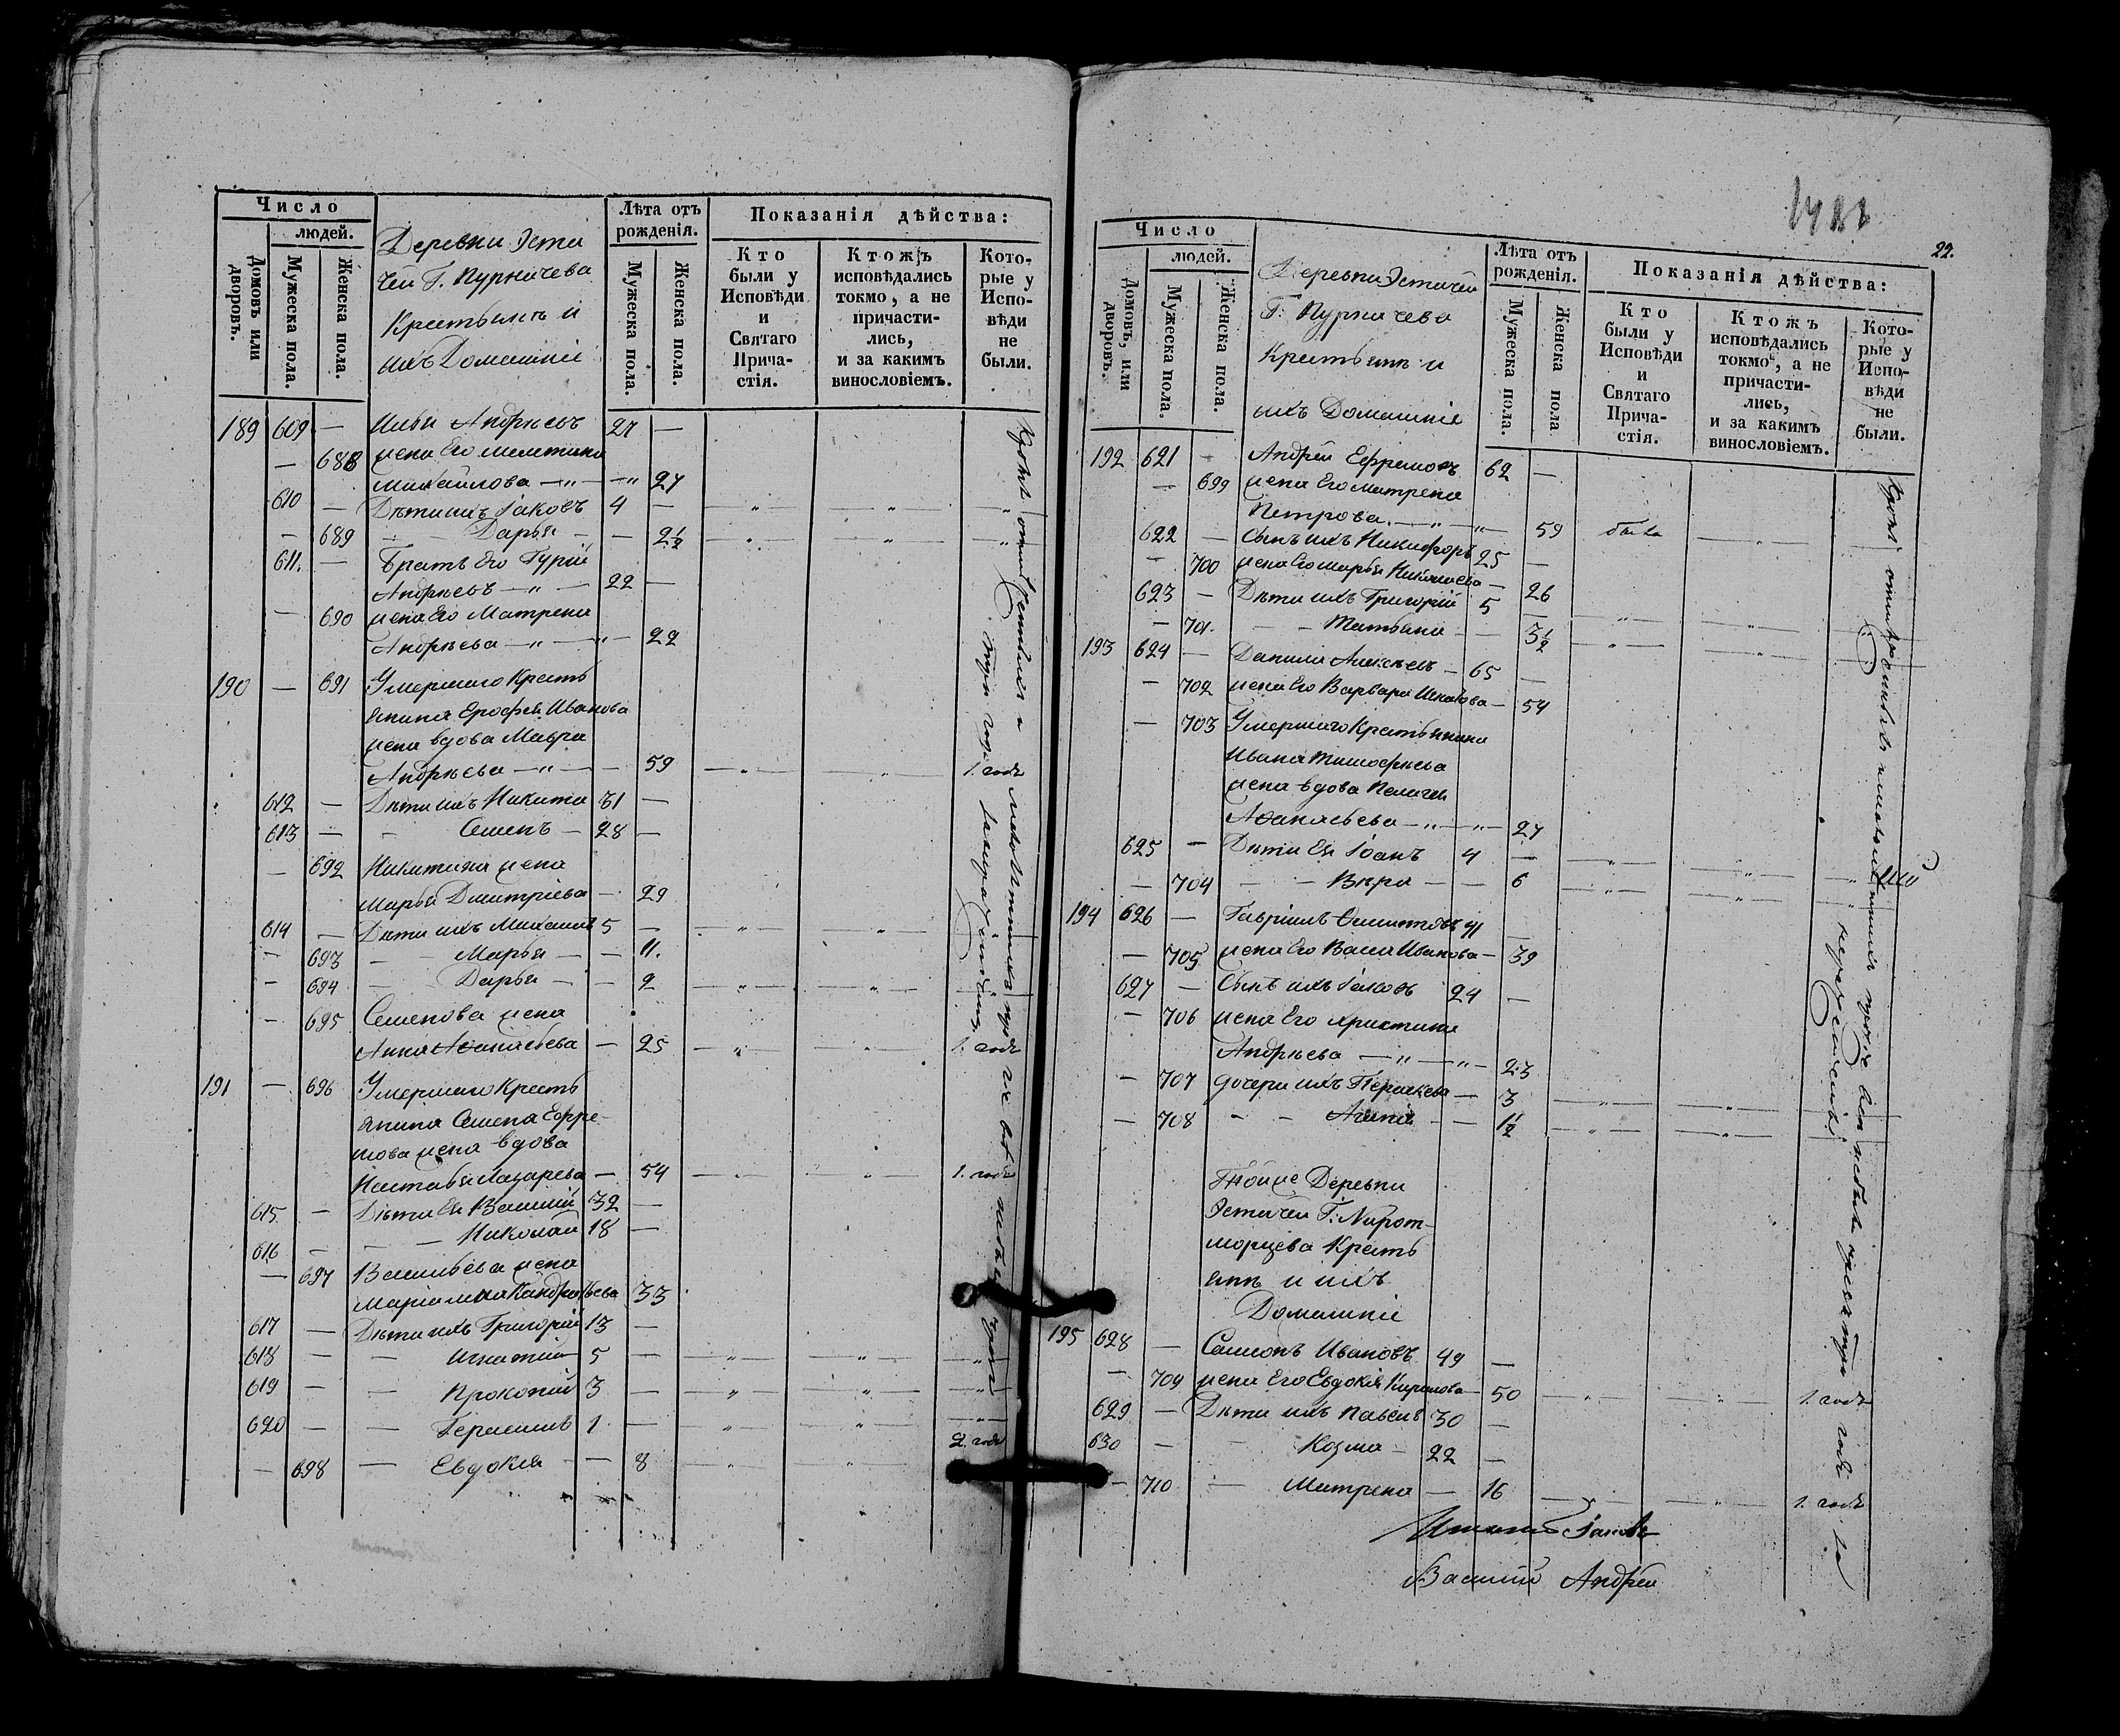 Число
людей.
Домовъ или дворовъ.
Мужеска пола.
Женска пола.
Деревни Эсти
чей Г. Пурничева
Крестьянъ и
ихъ Домашніе
Лѣта отъ
рожденія.
Мужеска пола.
Женска пола.
Показанія дѣйства:
Кто
были у
Исповѣди
и
Святаго
Прича-
стія.
Ктожъ
исповѣдались
токмо, а не
причасти-
лись,
и за какимъ
винословіемъ.
Кото-
рые у
Испо-
вѣди
не
были.
189 609 — Илья Андрѣевъ 27 —
— 688 жена Его
Михайлова —„— 27
610 — Дѣти ихъ Іаковъ 4 —
— 689 — Дарья — — 2½
611. — Братъ Его Гурій
Андрѣевъ —„— 22 —
— 690 жена Его Матрена
Андрѣева —„—„— 22
190 — 691 Умершаго Кресть
янина Ерофея Иванова
жена вдова Мавра
Андрѣева —„— 59 1. годъ
612 — Дѣти ихъ Никита 31 —
613 — — Семенъ — 28 —
— 692 Никитина жена
Марья Дмитріева — 29
614 — Дѣти ихъ Михаилъ 5 —
— 693 — Марья — — 11.
— 694 — Дарья — — 2
— 695 Семенова жена
Анна Аѳанасьева — 25 1. годъ
191 — 696 Умершаго Кресть
янина Семена Ефре-
мова жена вдова
Настасья Лазарева — 54 1. годъ
615. — Дѣти Ея Василій 32 —
616 — — Николай 18 —
— 697 Васильева жена
Маріамна Кандратьева 33
617 — Дѣти ихъ Григорій 13 —
618 — — Игнатій 5 —
619 — — Прокопій 3 —
620 — — Герасимъ 1 —
— 698 — Евдокія — — 8 2. годъ
22.
Число
людей.
Домовъ, или дворовъ.
Мужеска пола.
Женска пола.
Деревни Эстичей
Г: Пурничева
Крестьянъ и
ихъ Домашніе
Лѣта отъ
рожденія.
Мужеска пола.
Женска пола
Показанія дѣйства:
Кто
были у
Исповѣди
и
Святаго
Прича-
стія.
Ктожъ
исповѣдались
токмо, а не
причасти-
лись,
и за какимъ
винословіемъ.
Кото-
рые у
Испо-
вѣди
не
были.
192 621 — Андрей Ефремовъ 62 —
— 699 жена Его Матрена
Петрова. —„—„— 59
622 — Сынъ ихъ Никифоръ 25 —
— 700 жена Его Марья Николаева — 26
623 — Дѣти ихъ Григорій 5 —
— 701. — — Татьяна — — 3½
193 624 — Данила Алексѣевъ — 65 —
— 702 жена Его Варвара Игнатова — 54
— 703 Умершаго Крестьянина
Ивана Тимофѣева
жена вдова Пелагея
Аѳанасьева —„—„— 27
625 — Дѣти Ея Іоанъ 4 —
— 704 — — Вѣра — — 6
194 626 — Гавріилъ 41 —
— 705 жена Его Васса Иванова — 39
627 — Сынъ ихъ Іаковъ 24 —
— 706 жена Его Христина
Андрѣева —„—„— 23
— 707 дочери ихъ Параскева — 3
— 708 — — Агапія — — 1½
Тойже Деревни
Эстичей Г:
Кресть
янъ и ихъ
Домашніе
195 628 — Самсонъ Ивановъ 49 —
— 709 жена Его Евдокія — 50 1. годъ
629 — Дѣти ихъ Павелъ 30 —
630 — — Козма — 22 —
— 710 — Матрена — 16 1. годъ
Іаковъ
Василій Андрей